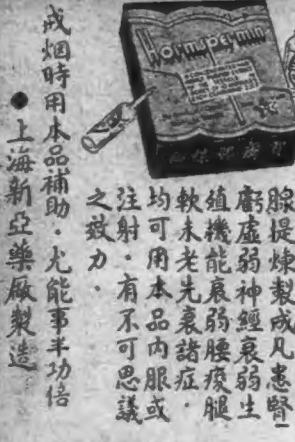 Hormspermin
腺提煉製成凡患腎
虧虛弱神經衰弱生
殖機能衰弱腰痠腿
軟未老先衰諸症·
均可用本品內服或
注射·有不可思議
之效力·
戒烟時用本品補助·尤能事半功倍
●上海新亞藥廠製造